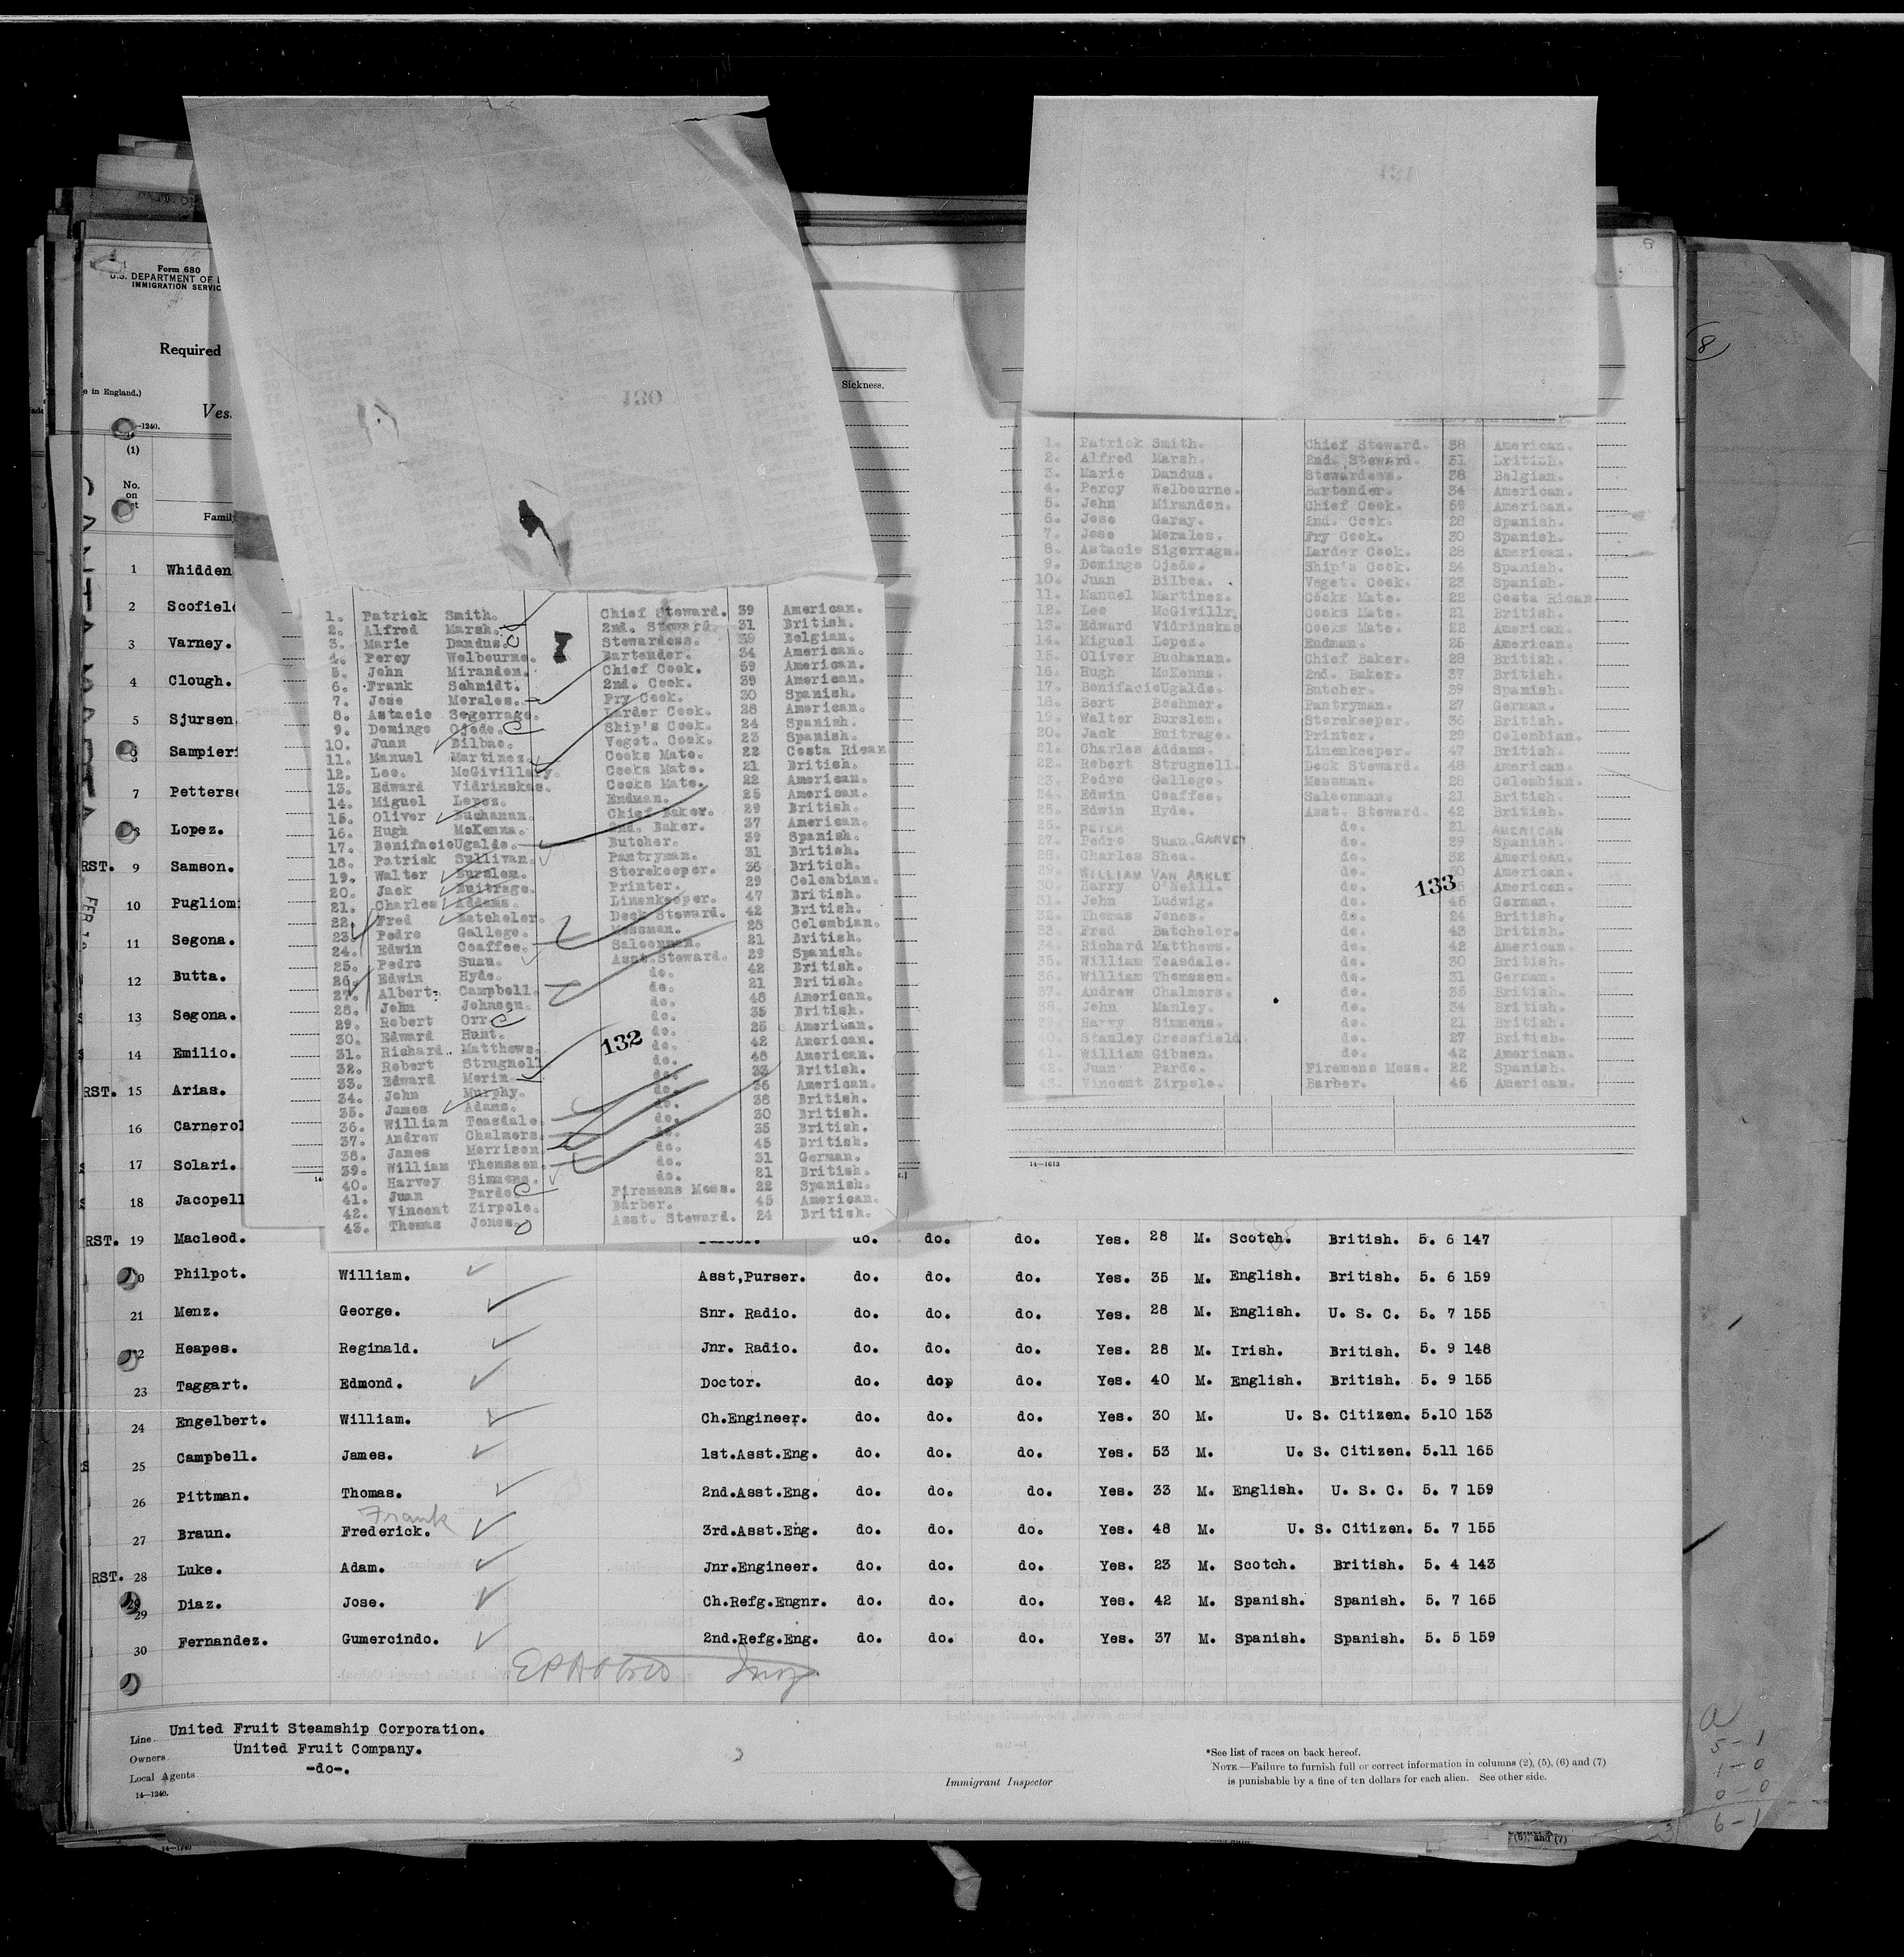 Form 680
U.S. DEPARTMENT OF
IMMIGRATION SERVIC
Required
e in England.)
Ves.
-1240.
(1)
No.
on
Famil
Sickness.
1 Whidden
2 Scofield
3 Varney.
4 Clough.
5 Sjursen
Sampier
7 Petterse
Lopez.
RST. 9 Samson.
10 Pugliom
11 Segona.
12 Butta.
13 Segona.
14 Emilio.
RST. 15 Arias.
16 Carnerol
17 Solari.
18 Jacopell
130
1. Patrick Smith. Chief Steward. 39 American.
2. Alfred Marsh. 2nd. Steward. 31 British.
3. Marie Dandus. Stewardess. 39 Belgian.
4. Percy Welbourne. Bartender. 34 American.
5. John Miranden. Chief Cook. 59 American.
6. Frank Schmidt. 2nd. Cook. 39 American.
7. Jose Morales. Fry Cook. 30 Spanish.
8. Astacio Segerrage. Larder Cook. 28 American.
9. Domingo Ojede. Ship's Cook. 24 Spanish.
10. Juan Bilbao. Veget. Cook. 23 Spanish.
11. Manuel Martinez. Cooks Mate. 22 Costa Rican
12. Leo. McGivillary. Cooks Mate. 21 British.
13. Edward Vidrinskas. Cooks Mate. 22 American.
14. Miguel Lopez. Endman. 25 American.
15. Oliver Buchanan. Chief Baker. 29 British.
16. Hugh McKenna. 2nd. Baker. 37 American.
17. BonifacioUgalde. Butcher. 39 Spanish.
18. Patrick Sullivan. Pantryman. 31 British.
19. Walter Burslem. Storekeeper. 36 British.
20. Jack Buitrage. Printer. 29 Colombian.
21. Charles Addams. Linenkeeper. 47 British.
22. Fred Batchelor. Deck Steward. 42 British.
23. Pedro Gallego. Messman. 28 Colombian.
24. Edwin Coaffee. Saloonman. 21 British.
25. Pedro Suau. Asst.Steward. 29 Spanish.
26. Edwin Hyde. do. 42 British.
27. Albert Campbell. do. 21 British.
28. John Johnson. do. 48 American.
29. Robert Orr. do. 35 British.
30. Edward Hunt. do. 25 American.
31. Richard. Matthews. do. 42 American.
32. Robert Strugnell do. 48 American.
33. Edward Morin. do. 33 British.
34. John Murphy. do. 36 American.
35. James Adams. do. 38 British.
36. William Teasdale. do. 30 British.
37. Andrew Chalmers. do. 35 British.
38. James Morrison. do. 45 British.
39. William Thomssen. do. 31 German.
40. Harvey Simmons. do. 21 British.
41. Juan Pardo. Firemens Mess. 22 Spanish.
42. Vincent Zirpolo. Barber. 45 American.
43. Thomas Jones. Asst. Steward. 24 British.
132
1. Patrick Smith. Chief Steward. 38 American.
2. Alfred Marsh. 2nd. Steward. 31 British.
3. Marie Dandus. Stewardess. 38 Belgian.
4. Percy Welbourne. Bartender. 34 American.
5. John Miranden. Chief Cook. 59 American.
6. Jose Garay. 2nd. Cook. 28 Spanish.
7. Jose Morales. Fry Cook. 30 Spanish.
8. Astacio Sigerraga. Larder Cook. 28 American.
9. Domingo Ojede. Ship's Cook. 24 Spanish.
10. Juan Bilbea. Veget. Cook. 23 Spanish.
11. Manuel Martinez. Cooks Mate. 22 Costa Rican
12. Leo McGivillr. Cooks Mate. 21 British.
13. Edward Vidrinskas Cooks Mate. 22 American.
14. Miguel Lopez. Endman. 25 American.
15. Oliver Buchanan. Chief Baker. 28 British.
16. Hugh McKenna. 2nd. Baker. 37 British.
17. BonifacioUgalde. Butcher. 39 Spanish.
18. Bert Boehmer. Pantryman. 27 German.
19. Walter Burslem. Storekeeper. 36 British.
20. Jack Buitrago. Printer. 29 Colombian.
21. Charles Addams. Linenkeeper. 47 British.
22. Robert Strugnell. Deck Steward. 48 American.
23. Pedro Gallego. Messman. 28 Colombian.
24. Edwin Coaffee. Saloonman. 21 British.
25. Edwin Hyde. Asst. Steward. 42 British.
26. PETER GARVEY do. 21 AMERICAN
27. Pedro Suau. do. 29 Spanish.
28. Charles Shea. do. 32 American.
29. WILLIAM VAN ARKLE do. American.
30. Harry O'Neill. do. American.
31. John Ludwig. do. 45 German.
32. Thomas Jones. do. 24 British.
33. Fred Batchelor. do. 43 British.
34. Richard Matthews. do. 42 American.
35. William Teasdale. do. 30 British.
36. William Thomssen. do. 31 German.
37. Andrew Chalmers. do. 35 British.
38. John Manley. do. 34 British.
39. Harry Simmons. do. 21 British.
40. Stanley Cressfield. do. 27 British.
41. William Gibson. do. 42 American.
42. Juan Pardo. Firemens Mess. 22 Spanish.
43. Vincent Zirpolo. Barber. 45 American.
133
14—1613
RST. 19 Macleod. do. do. do. Yes. 28 M. Scotch. British. 5. 6 147
Philpot. William. Asst,Purser. do. do. do. Yes. 35 M. English. British. 5. 6 159
21 Menz. George. Snr. Radio. do. do. do. Yes. 28 M. English. U. S. C. 5. 7 155
Heapes. Reginald. Jnr. Radio. do. do. do. Yes. 28 M. Irish. British. 5. 9 148
23 Taggart. Edmond. Doctor. do. do. do. Yes. 40 M. English. British. 5. 9 155
24 Engelbert. William. Ch.Engineer. do. do. do. Yes. 30 M. U. S. Citizen. 5.10 153
25 Campbell. James. 1st.Asst.Eng. do. do. do. Yes. 53 M. U. S. Citizen. 5.11 165
26 Pittman. Thomas. 2nd.Asst.Eng. do. do. do. Yes. 33 M. English. U. S. C. 5. 7 159
Frank
27 Braun. Frederick. 3rd.Asst.Eng. do. do. do. Yes. 48 M. U. S. Citizen. 5. 7 155
RST. 28 Luke. Adam. Jnr.Engineer. do. do. do. Yes. 23 M. Scotch. British. 5. 4 143
29 Diaz. Jose. Ch.Refg.Engnr. do. do. do. Yes. 42 M. Spanish. Spanish. 5. 7 165
30 Fernandez. Gumercindo. 2nd.Refg.Eng. do. do. do. Yes. 37 M. Spanish. Spanish. 5. 5 159
Line United Fruit Steamship Corporation.
Owners United Fruit Company.
Local Agents -do-.
14—1240.
Immigrant Inspector
*See list of races on back hereof.
NOTE.—Failure to furnish full or correct information in columns (2), (5), (6) and (7)
is punishable by a fine of ten dollars for each alien. See other side.
(8)
5-1
1-0
0-0
6-1
(6), and (7)
14—1240